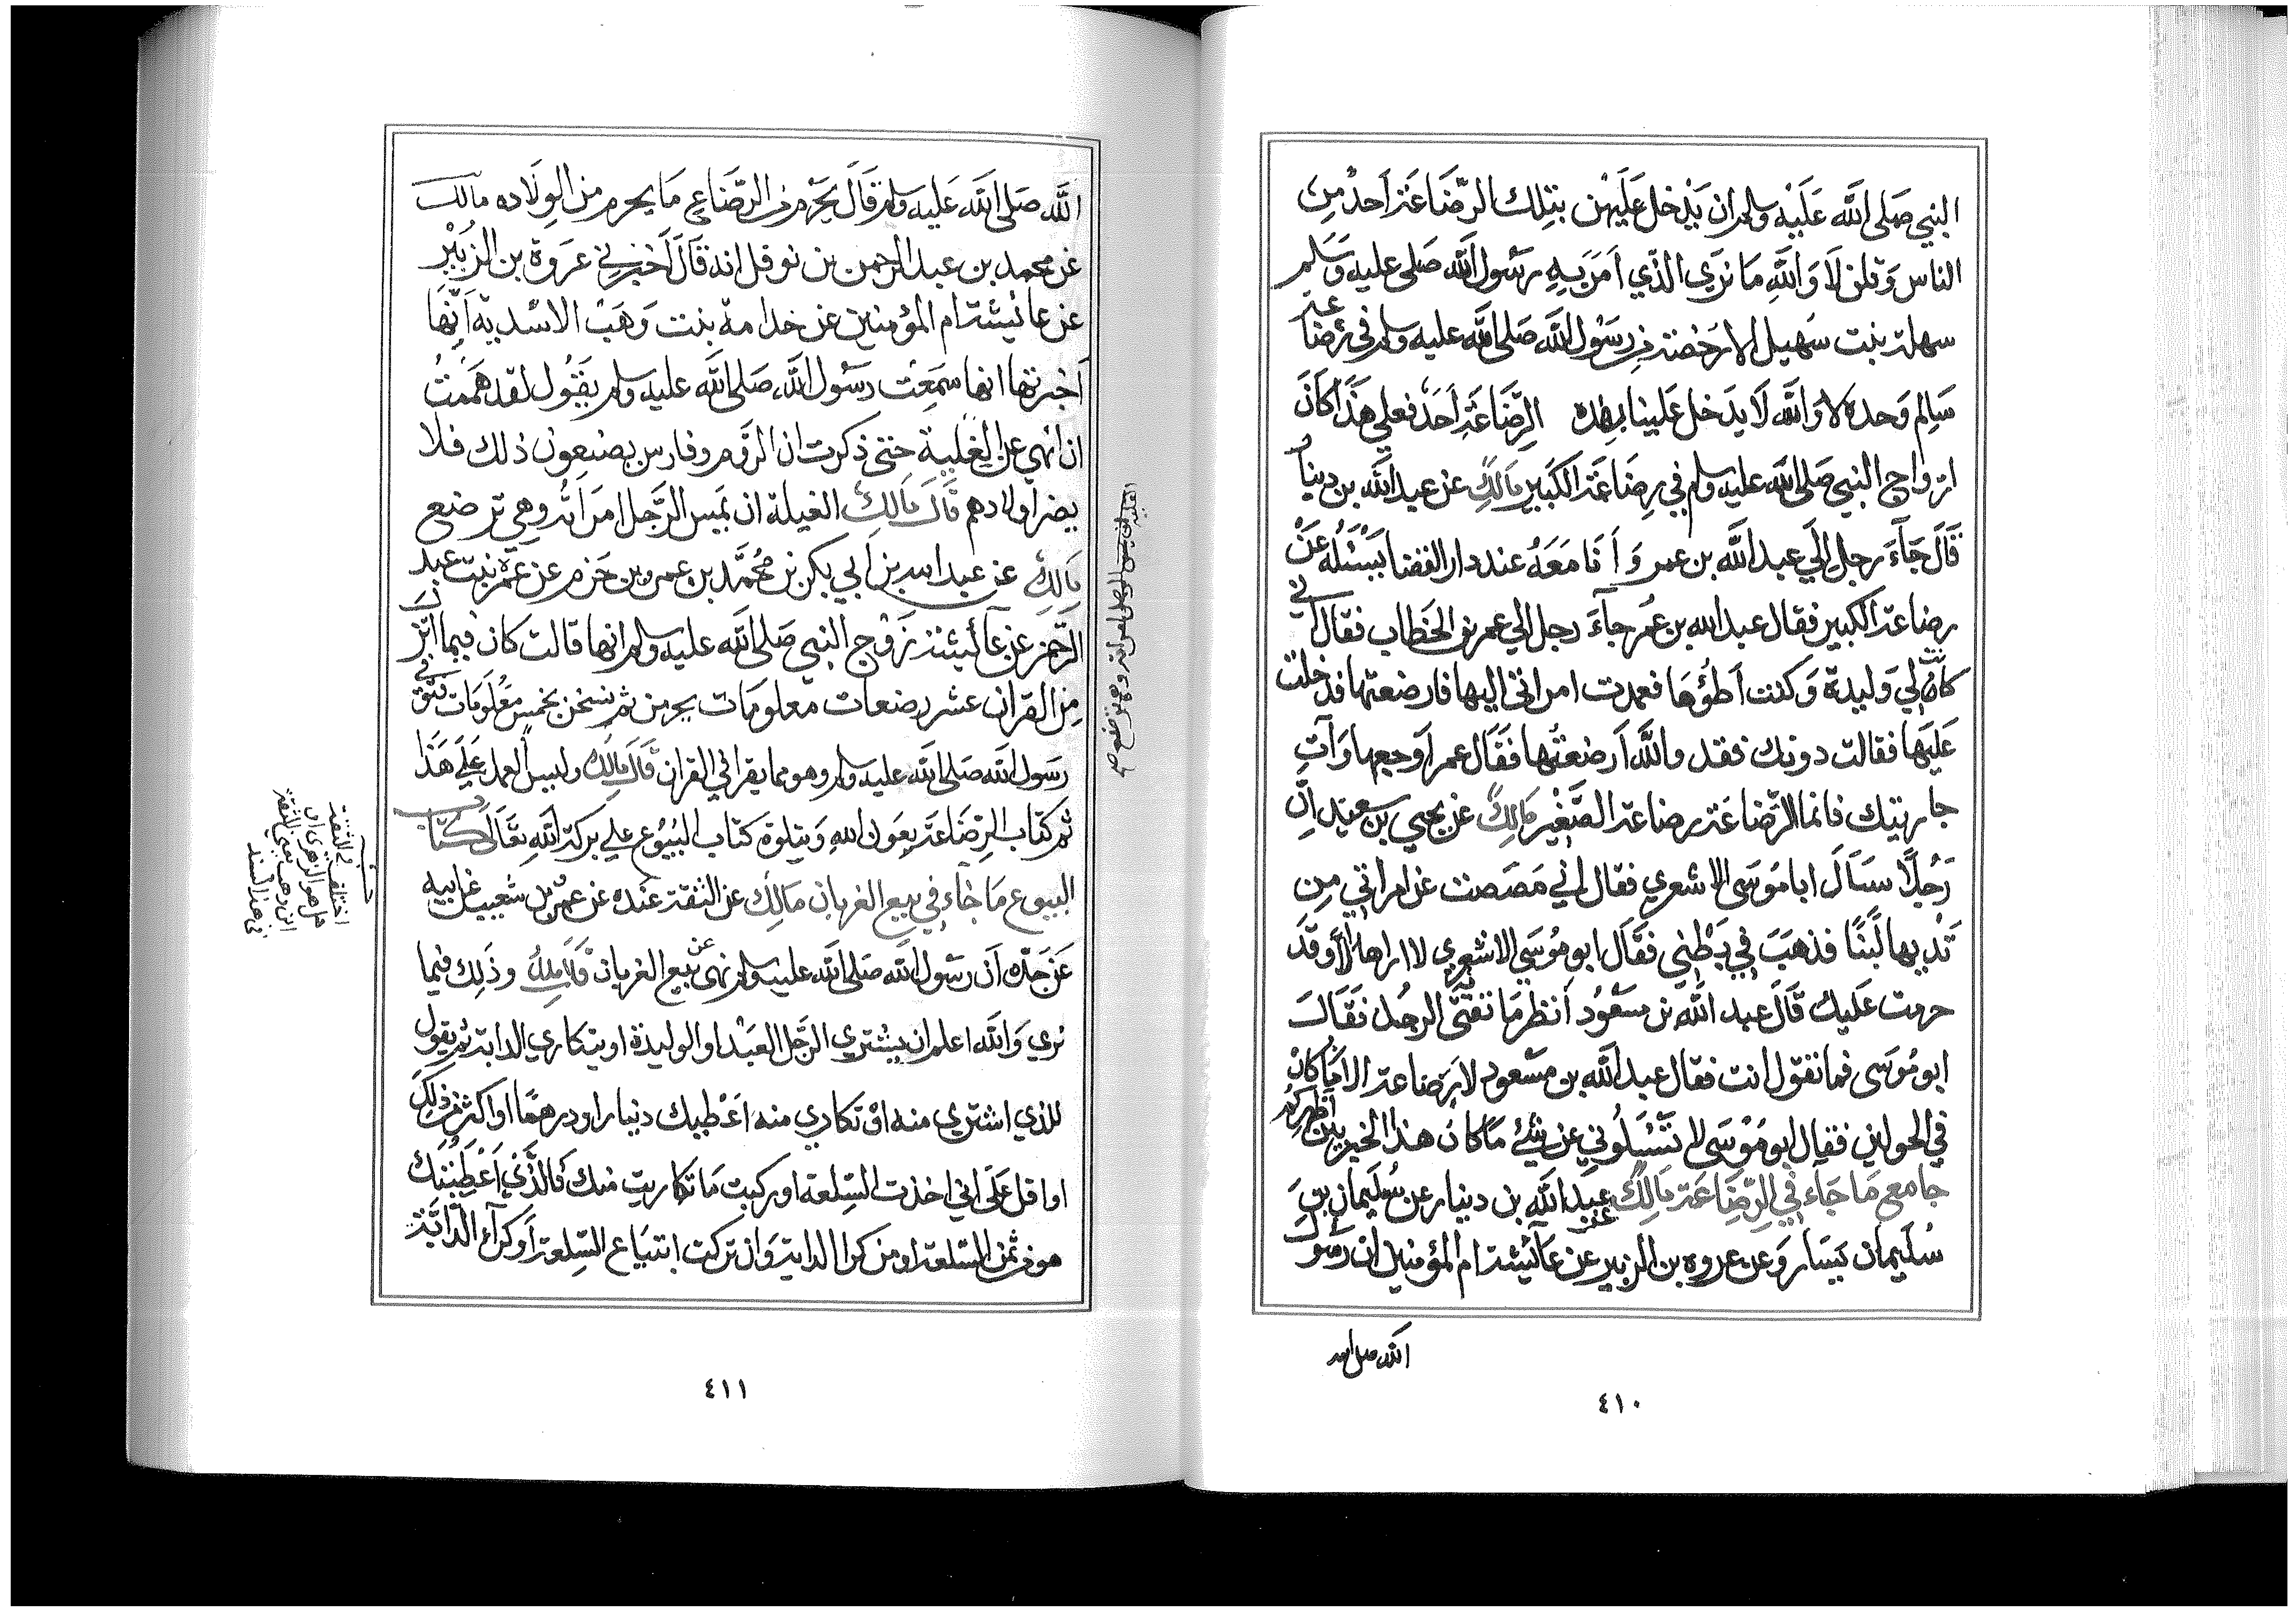 النبي صَلى الله عَلَيْه وسلم ان يَدْخل عَلَيْهن بتلك الرّضَاعَة اَحدٌ مِنَ
الناس وَقلن لَا وَاللهِ مَا نَرَي الذّي اَمَرَ بِهِ رَسُول الله صَلى عليه وَسَلم
سهلة بنت سَهيل الا رَخصَة من رسَوُل الله صَلى الله عليه وسلم في رَضاعة
سَالِم وَحده لا وَالله لَا يَدخل عَلَينا بهذه الرِّضَاعَةِ اَحَد فعلي هَذا كَانَ
ازواج النبي صَلى الله عليه وسلم في رِضَاعَة الكَبير مَالِك عن عبد الله بن دينار
قَالَ جَآءَ رجل اِلَي عبد الله بن عمر وَاَنَا مَعَهُ عند دار القضا يَسْئلُه عَنْ
رضاعة الكبير فقال عبد الله بن عُمَر جآءَ رجل الي عمر بن الخطاب فقال اني
كانت لي وَليدة وَكنت اَطؤُهَا فعمدت امراتي اليها فارضعتها فدخلت
عَلَيها فقالت دونك فقد والله اَرضعتُها فَقَال عمر اَوجعها وَآتِ
جاريتك فانما الرّضاعَة رضاعة الصَّغير مَالِكٌ عن يحيي بن سَعيد اِنّ
رَجُلًا سَاَلَ ابا مُوسَى الاشعري فقال اِني مَصَصت عن امراتي مِن
ثَدييها لَبَنًا فذهَبَ في بَطني فقَال ابو مُوسَي الاشعري لا اراها الا وقَد
حرمت عَليك قَالَ عبد الله بن مسعُود اُنظر مَا تفتي به الرجُل فَقَالَ
ابو مُوسَى فما تقول انت فقال عبد الله بن مَسْعود لا رَضاعة الا مَا كان
في الحولين فقال ابو مُوْسَى لا تَسْئلُوني عن شيْئ مَا كان هذا الحبر بين اظهركم
جامع مَا جَآء في الرّضَاعَة مَالِكٌ عن عبد الله بن دينار عن سُليمان بن
سُلَيمان يَسَار وَعن عروه بن الزبير عن عَآئشة ام المؤمنين ان رسُول
الله صلى الله
٤١٠
الله صَلى الله عَليه وسلم قَالَ يَحْرُم من الرّضَاعِ مَا يحرم من الوِلَاده مالك
عن محمد بن عبد الرحمن بن نوفل انه قَالَ اَخبَرني عَروة بن الزُبَيْر
عن عائشة ام المؤمنين عن خدامة بنت وَهَبْ الاسْدية اَنّهَا
اَخبرتها انها سَمِعَت رَسُول الله صَلى الله عليه وسلم يَقُول لقد هَمَمْتُ
ان انهي عن الغيلة حتى ذكرت ان الرّوم وفارس يصنعون ذلك فلا
يضر اولادهم قَالَ مَالك الغيلة ان يَمس الرَّجل امرَاَته وهي ترضع
مَالِك عن عبد الله بن اَبي بكر بن مُحمَّد بن عمرو بن حَزم عن عَمرة بنت عبد
الرّحمن عن عَآئشة زَوْج النبي صَلى الله عليه وسلم انها قالت كان فيما انزل
مِن القران عشر رضعات معلومَات يحرمن ثم نسخن بخمسٍ مَعْلومَات فتوفي
رَسول الله صَلى الله عليه وسلم وهو مما يقرا في القران قَالَ مَالك وليس العمل عَلَي هَذا
ثم كتاب الرّضاعَة بعَون الله وَيتلوه كتاب البيُوع علي بركة الله تعَالى كتاب
البيوع مَا جَاء في بيع العربان مَالك عن الثقة عنده عن عمرو بن شعيب عن ابيه
عَن جَدّه اَن رَسُول الله صَلى الله عليه وسلم نهى عن بيع العربان قَالَ مالك وذَلِك فيما
نري وَالله اعلم ان يشتري الرّجل العَبْد او الوليدة او يتكاري الدابة ثم يقول
للذي اشتري منه اوْ تكاري منه اَعْطيك دنيارا او درهمًا او اكثر من ذلك
او اقل عَلَى اني اخذت السِّلعة او ركبت مَا تكاريت منك فالذّي اَعْطيتك
هو من ثمن السّلعة او من كرا الدابة وَان تركت ابتيَاع السّلعة اَو كرآء الدّابَّة
اختلف في الثقة
هل هو الزهري او
ابن وهب يعني الثقة
في هذا السند
٤١١